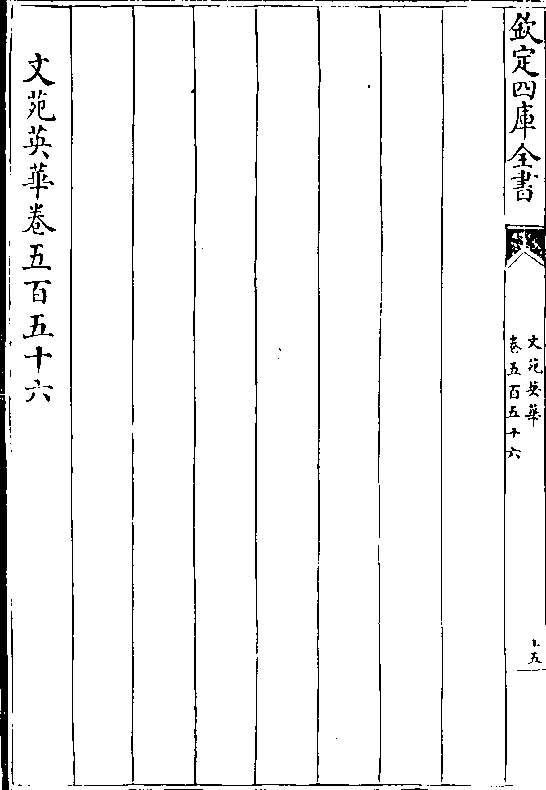 欽定四庫全書
文苑英華
卷五百五十六
十五
文苑英華卷五百五十六